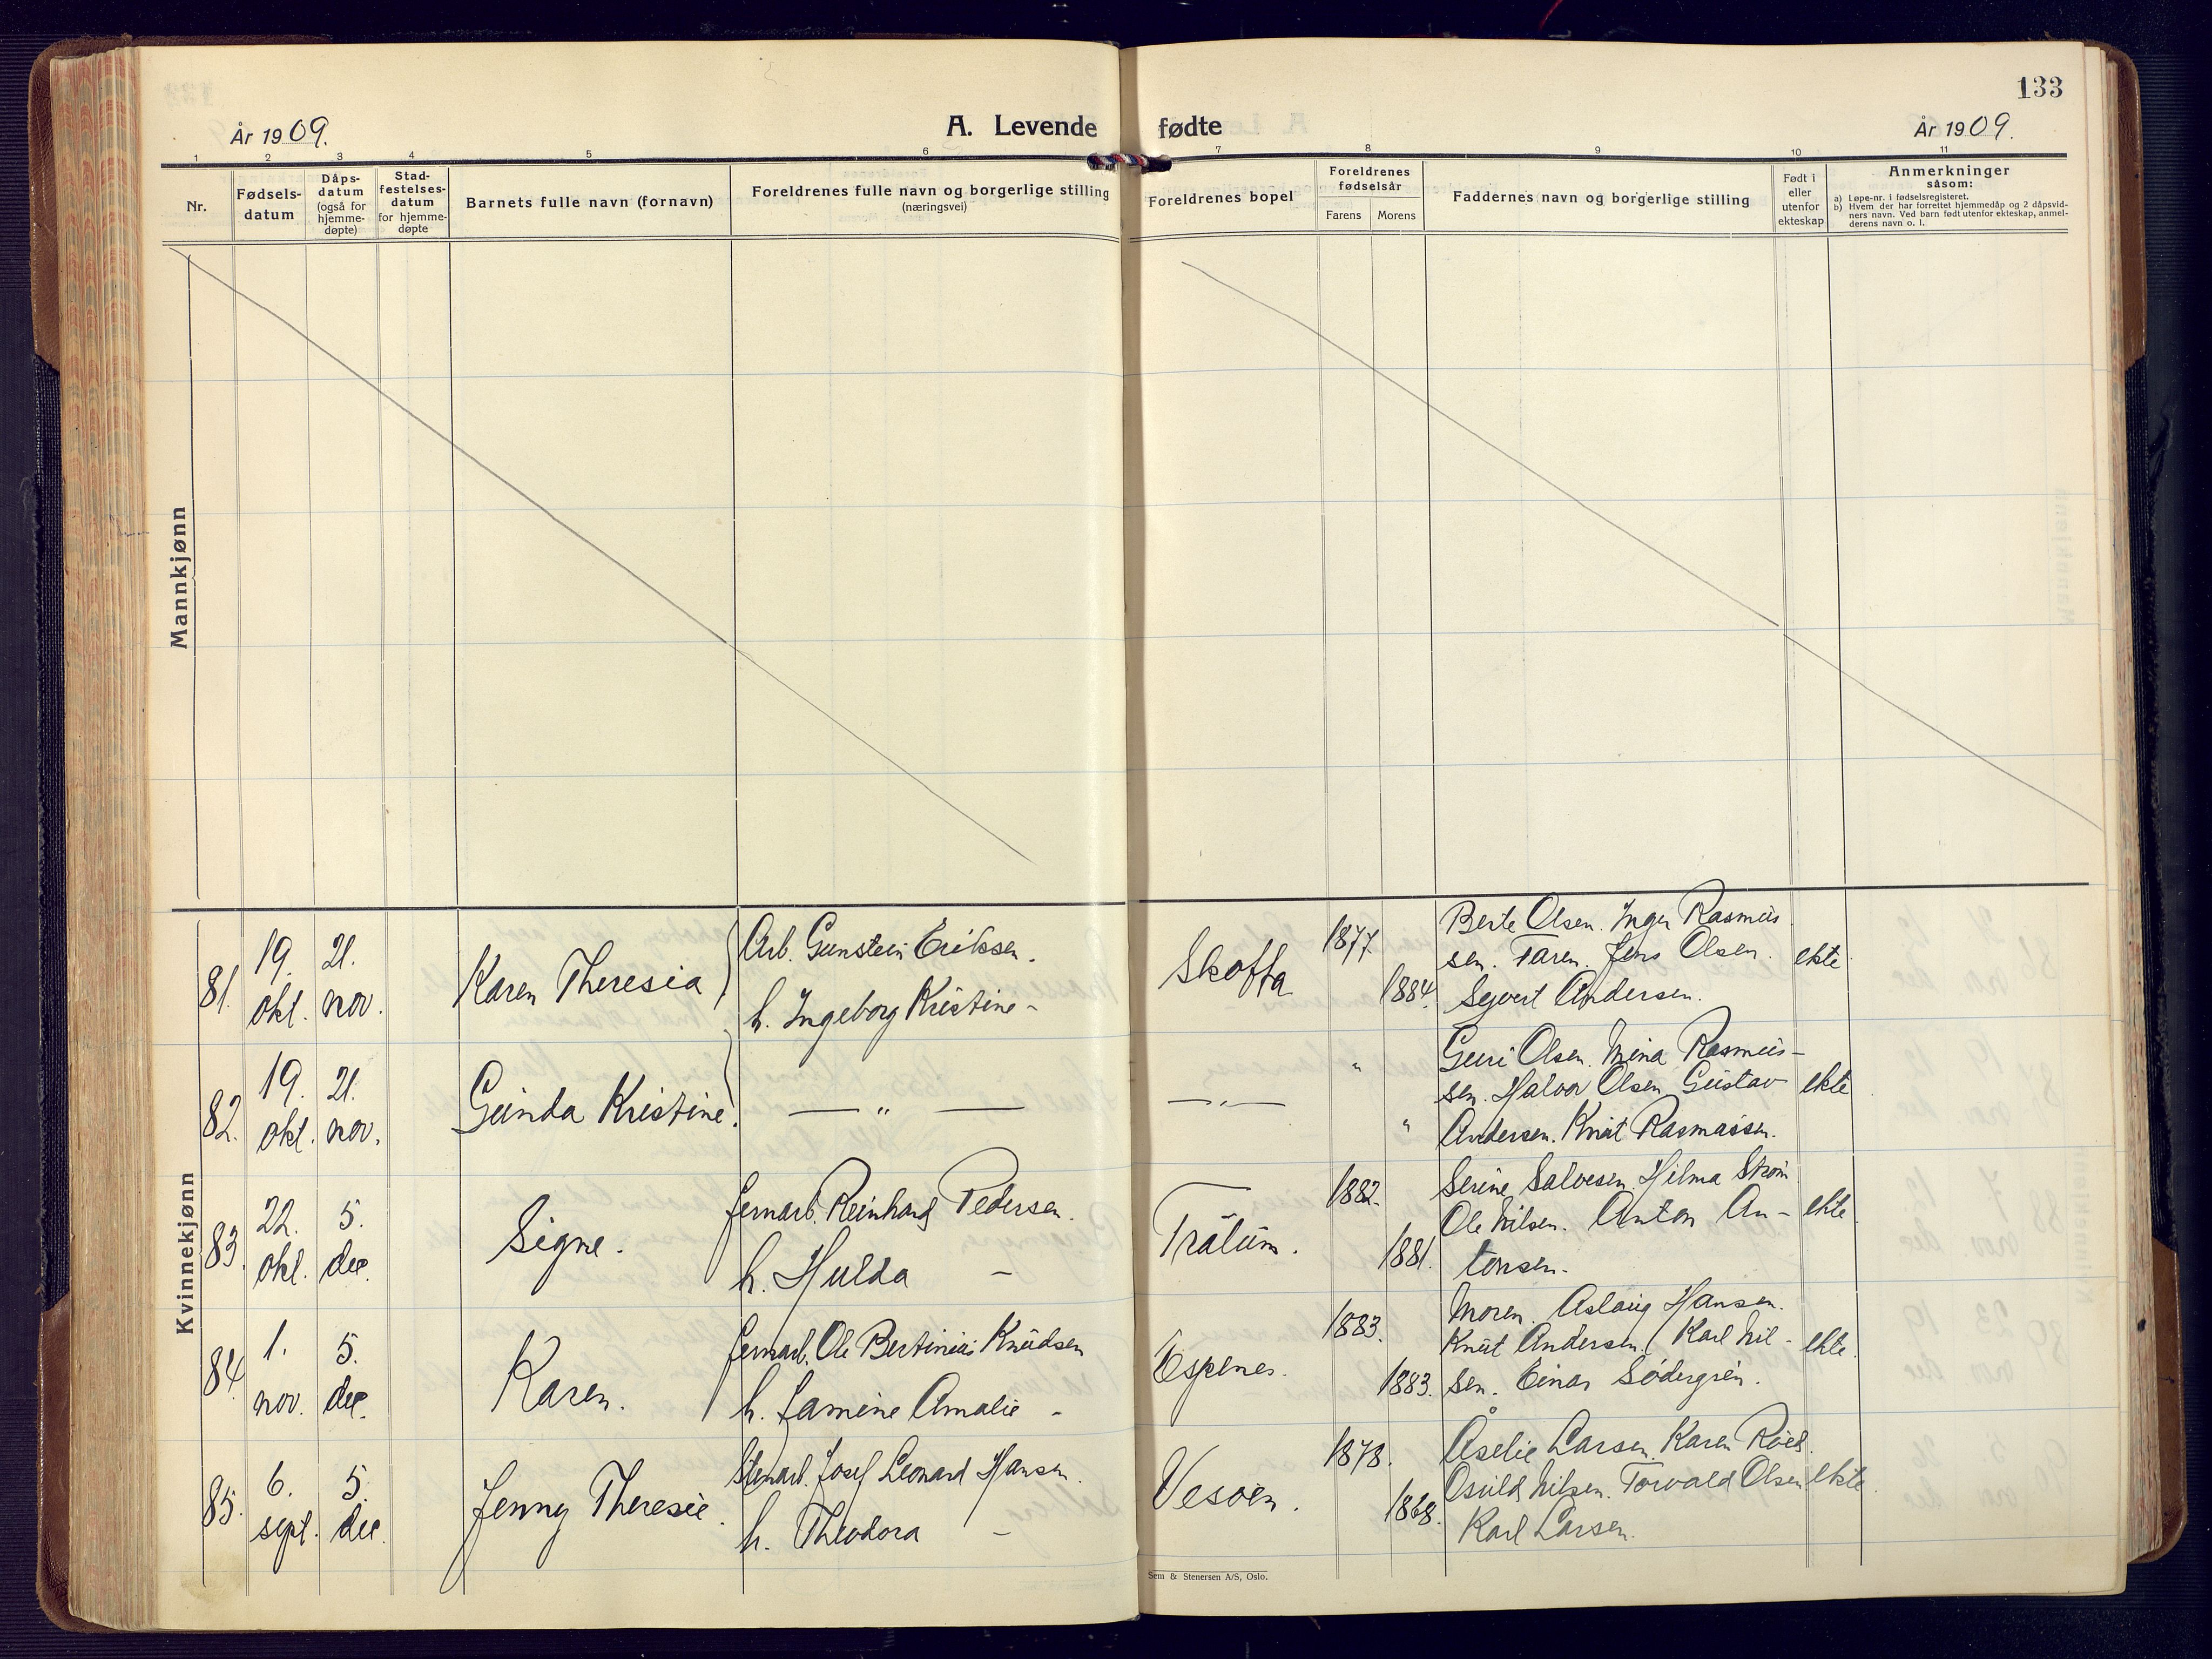 133
År 1909.
A. Levende fødte
År 1909.
1 2 3 4 5 6 7 8 9 10 11
Nr.
Fødsels-
datum
Dåps-
datum
(også for
hjemme-
døpte)
Stad-
festelses-
datum
for hjemme-
døpte
Barnets fulle navn (fornavn)
Foreldrenes fulle navn og borgerlige stilling
(næringsvei)
Foreldrenes bopel
Foreldrenes
fødselsår
Farens Morens
Faddernes navn og borgerlige stilling
Født i
eller
utenfor
ekteskap
Anmerkninger
såsom:
a) Løpe-nr. i fødselsregisteret.
b) Hvem der har forrettet hjemmedåp og 2 dåpsvid-
ners navn. Ved barn født utenfor ekteskap, anmel-
derens navn o. l.
Mannkjønn
Kvinnekjønn
81.
19.
okt.
21.
nov.
Karen Theresia
Arb. Gunstein Eriksen.
h. Ingeborg Kristine -
Skofta
1877.
1884.
Berte Olsen. Inger Rasmus
sen. Faren. Jens Olsen.
Syvert Andersen.
ekte
82.
19.
okt.
21.
nov.
Gunda Kristine.
— " —
— " —
"
"
Guri Olsen. Mina Rasmus-
sen. Halvor Olsen. Gustav
Andersen. Knut Rasmussen.
ekte
83.
22.
okt.
5.
dec.
Signe.
Jernarb. Reinhard Pedersen.
h. Hulda -
Trålum.
1882.
1881.
Serine Salvesen. Hilma Strøm
Ole Nilsen. Anton An-
tonsen.
ekte.
84.
1.
nov.
5.
dec.
Karen.
Jernarb. Ole Bertinius Knudsen
h. Jamine Amalie -
Espenes.
1883.
1883.
Moren. Aslaug Hansen.
Knut Andersen. Karl Nil-
sen. Einar Södergrén.
ekte.
85.
6.
sept.
5.
dec.
Jenny Theresie.
Stenarb. Josef Leonard Hansen.
h. Theodora -
Vesøen.
1878.
1868.
Åselie Larsen. Karen
Osuld Nilsen. Torvald Olsen
Karl Larsen.
ekte.
Sem & Stenersen A/S, Oslo.